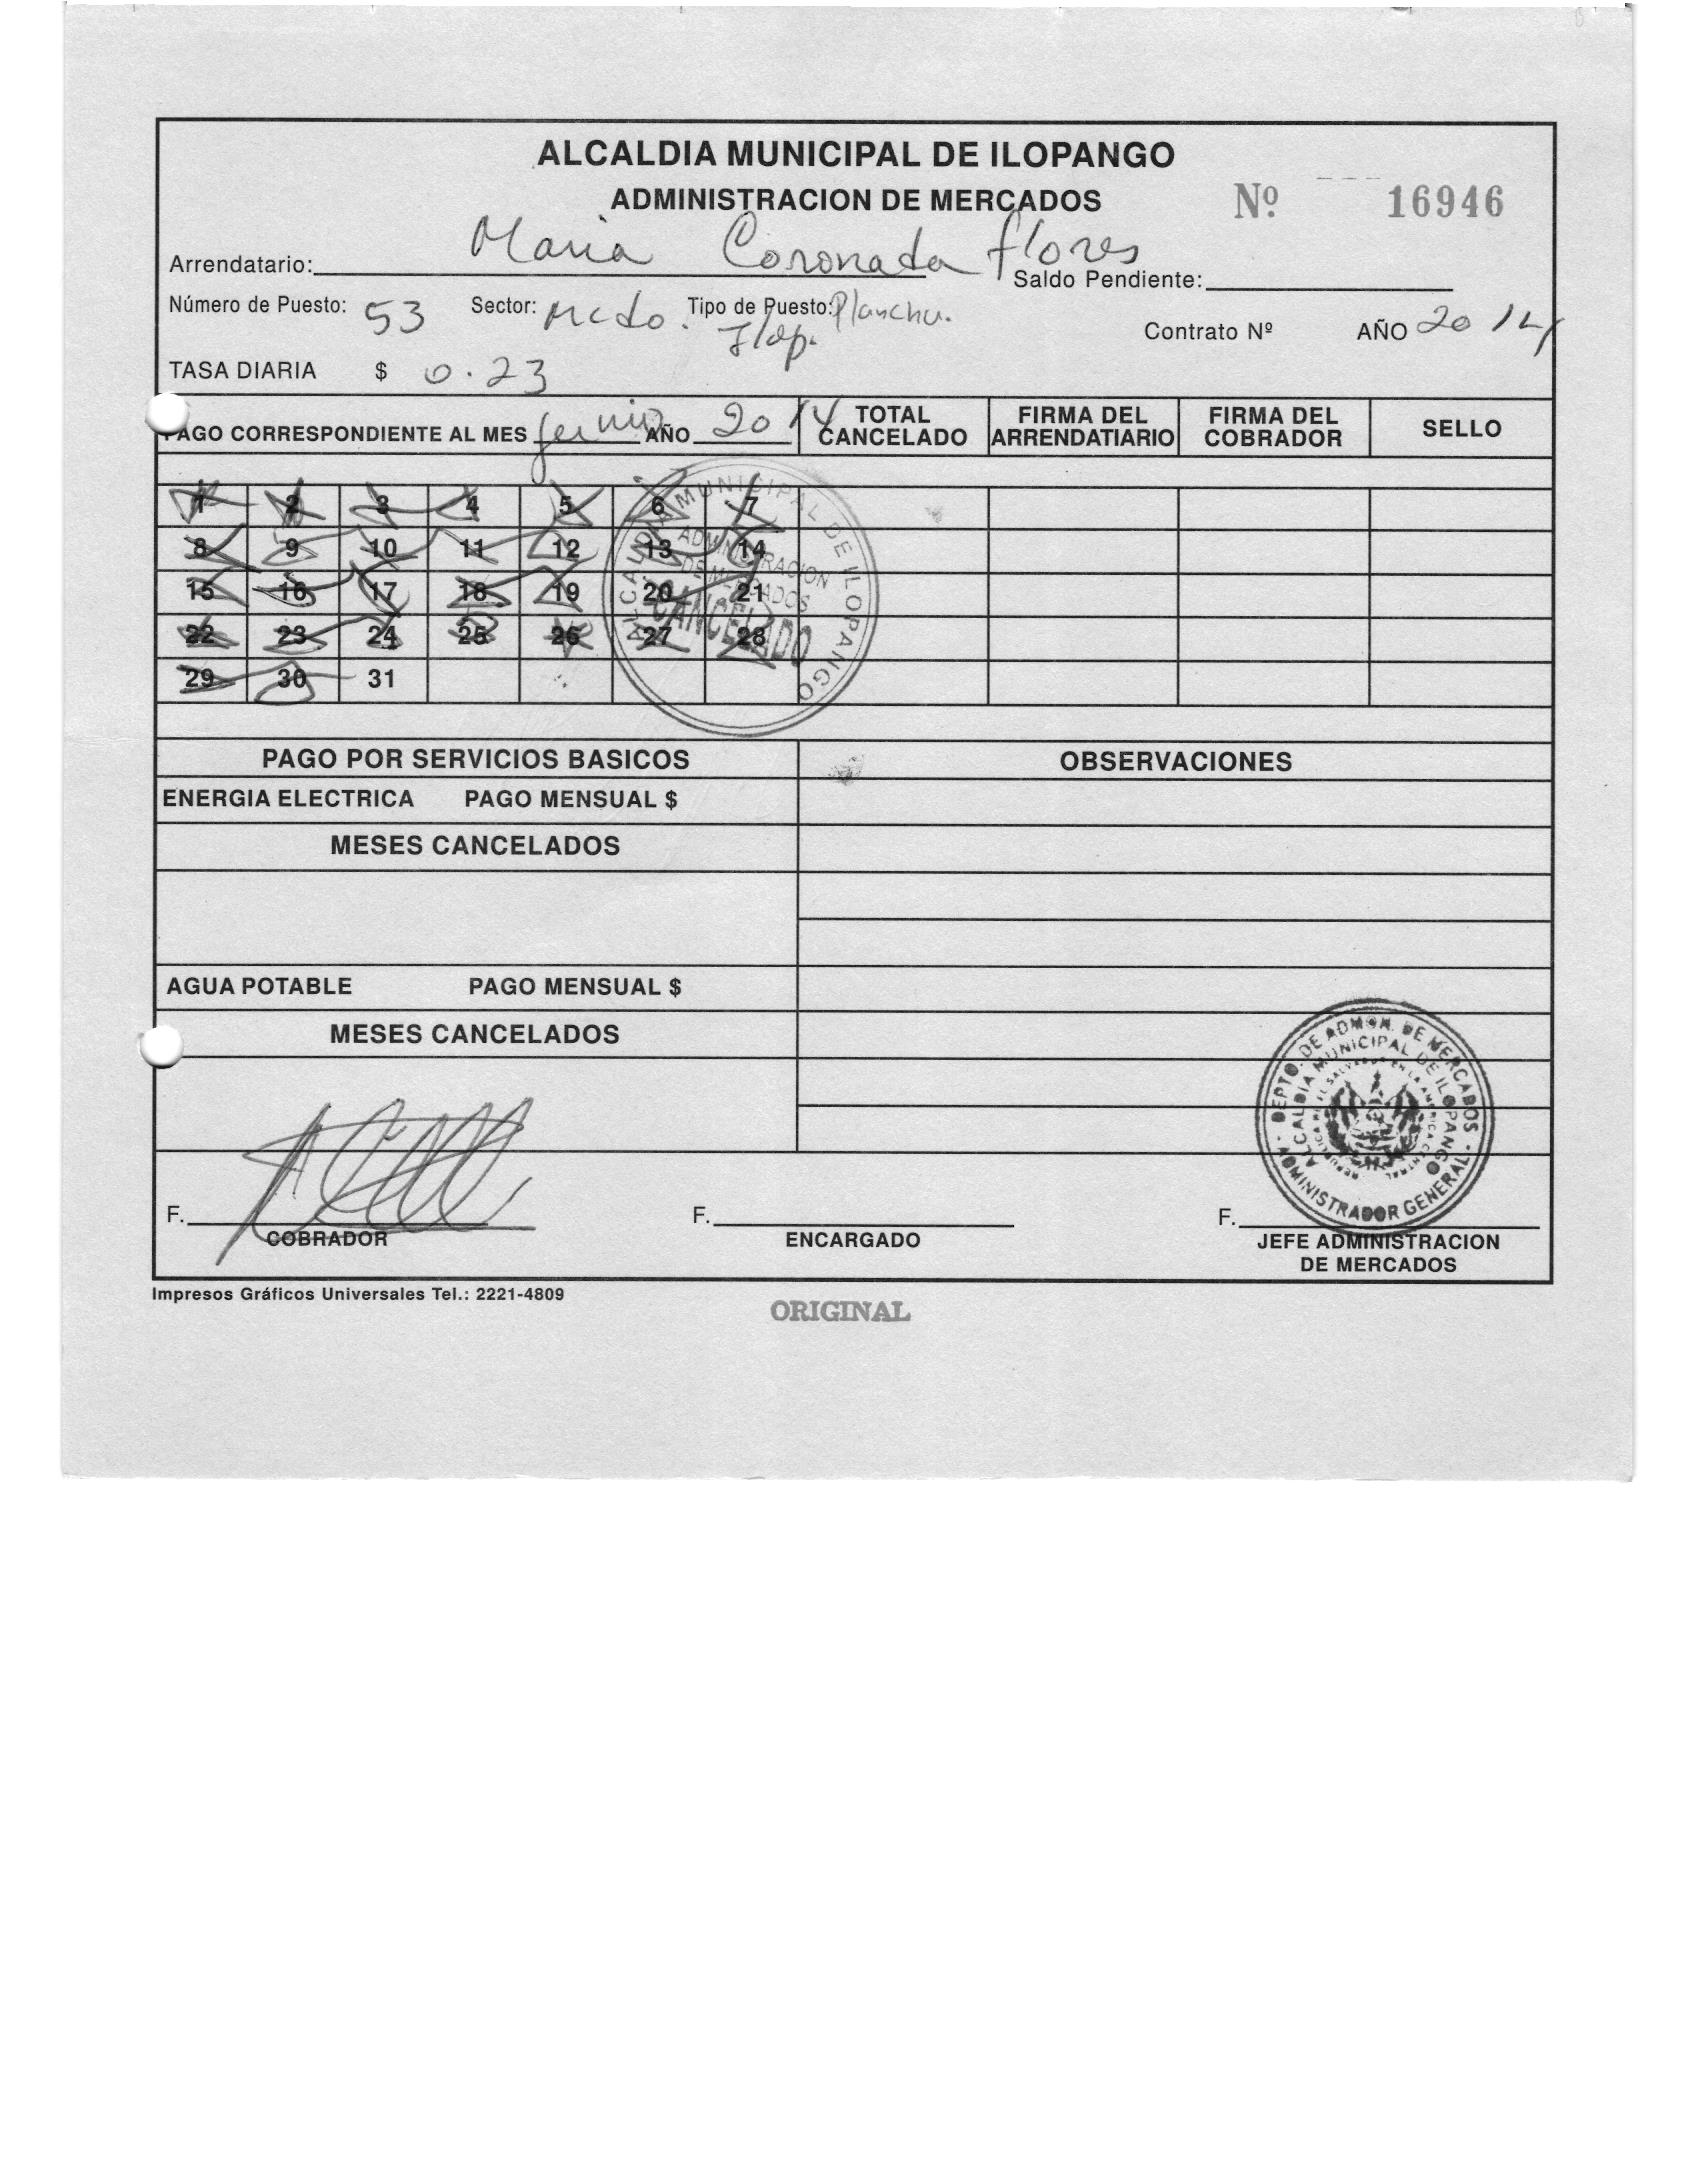 ALCALDIA MUNICIPAL DE ILOPANGO
ADMINISTRACION DE MERCADOS
Nº 16946
Arrendatario: Maria Coronada Flores
Saldo Pendiente:
Número de Puesto: 53 Sector: Mcdo. Ilop. Tipo de Puesto: Plancha.
Contrato Nº AÑO 2014
TASA DIARIA $ 0.23
PAGO CORRESPONDIENTE AL MES junio AÑO 2014 TOTAL CANCELADO FIRMA DEL ARRENDATIARIO FIRMA DEL COBRADOR SELLO
1 2 3 4 5 6 7
8 9 10 11 12 13 14
15 16 17 18 19 20 21
22 23 24 25 26 27 28
29 30 31
ALCALDIA MUNICIPAL DE ILOPANGO
ADMINISTRACION
DE MERCADOS
CANCELADO
PAGO POR SERVICIOS BASICOS OBSERVACIONES
ENERGIA ELECTRICA PAGO MENSUAL $
MESES CANCELADOS
AGUA POTABLE PAGO MENSUAL $
MESES CANCELADOS
DEPTO. DE ADMON. DE MERCADOS
ALCALDIA MUNICIPAL DE ILOPANGO
REPUBLICA DE EL SALVADOR EN LA AMERICA CENTRAL
ADMINISTRADOR GENERAL
F. F. F.
COBRADOR ENCARGADO JEFE ADMINISTRACION
DE MERCADOS
Impresos Gráficos Universales Tel.: 2221-4809
ORIGINAL